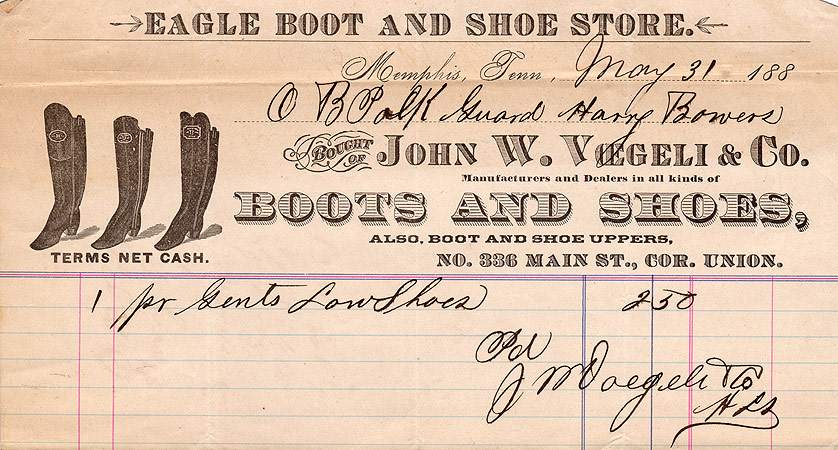 EAGLE BOOT AND SHOE STORE.
Memphis, Tenn, May 31 188
O B Polk Guard Harry Bowers
BOUGHT OF JOHN W. VŒGELI & CO.
Manufacturers and Dealers in all kinds of
BOOTS AND SHOES,
ALSO, BOOT AND SHOE UPPERS,
TERMS NET CASH.
NO. 336 MAIN ST., COR. UNION.
1 pr Gents Low Shoes 2 50
Pd
J W Voegeli & Co